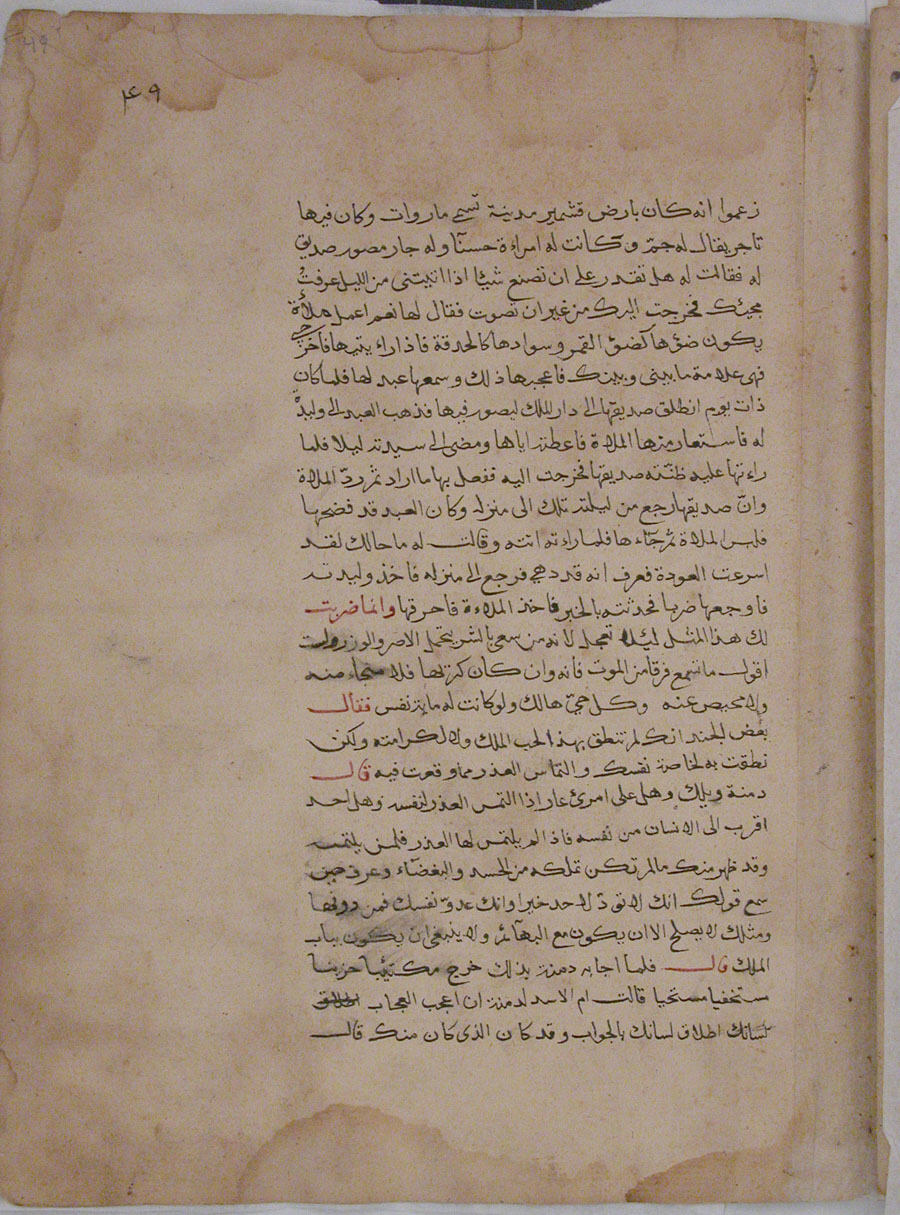 49
٤٩
زعموا انه كان بارض قشمير مدينة تسمى ماروات وكان فيها
تاجر يقال له جم وكانت له امراءة حسنا وله جار مصور صديق
له فقالت له هل تقدر على ان تصنع شيا اذا اتيتنى من الليل عرفت
مجيئك فخرجت اليك من غير ان تصوت فقال لها نعم اعمل ملأة
يكون ضؤها كضؤ القمر وسوادها كالحدقة فاذا رايتيها فاخرجي
فهى علامة ما بينى وبينك فاعجبها ذلك وسمعها عبد لها فلما كان
ذات يوم انطلق صديقها الى دار الملك ليصور فيها فذهب العبد الى وليدة
له فاستعار منها الملاة فاعطته اياها ومضى الى سيدته ليلا فلما
راءتها عليه ظنته صديقها فخرجت اليه ففعل بها ما اراد ثم ردّ الملاة
وانّ صديقها رجع من ليلته تلك الى منزله وكان العبد قد فضحها
فلبس الملاة ثم جآءها فلما راءته اتته وقالت له ما حالك لقد
اسرعت العودة فعرف انه قد دهي فرجع الى منزله فاخذ وليدته
فاوجعها ضربا فحدثته بالخبر فاخذ الملاءة فاحرقها وانما ضربت
لك هذا المثل ليلا تعجل لانه من سعى بالشر يتحمل الاصر والوزر ولست
اقول ما تسمع فرقا من الموت فانه وان كان كريها فلا منجاء منه
ولا محيص عنه وكل حيّ هالك ولو كانت له ماية نفس فقال
بعض الجند انك لم تنطق بهذا لحب الملك ولا لكرامته ولكن
نطقت به لخاصة نفسك والتماس العذر مما وقعت فيه قال
دمنة ويلك وهل على امرئ عار اذا التمس العذر لنفسه وهل احد
اقرب الى الانسان من نفسه فاذا لم يلتمس لها العذر فلمن يلتمسه
وقد ظهر منك ما لم تكن تملكه من الحسد والبغضآء وعرف حين
سمع قولك انك لا تودّ لاحد خيرا وانك عدوّ نفسك فمن دونها
ومثلك لا يصلح الا ان يكون مع البهآئم ولا ينبغى ان يكون بباب
الملك قال فلما اجابه دمنة بذلك خرج مكتئبا حزينا
مستخفيا مستحيا قالت ام الاسد لدمنة ان اعجب العجاب
لسانك اطلاق لسانك بالجواب وقد كان الذى كان منك قال